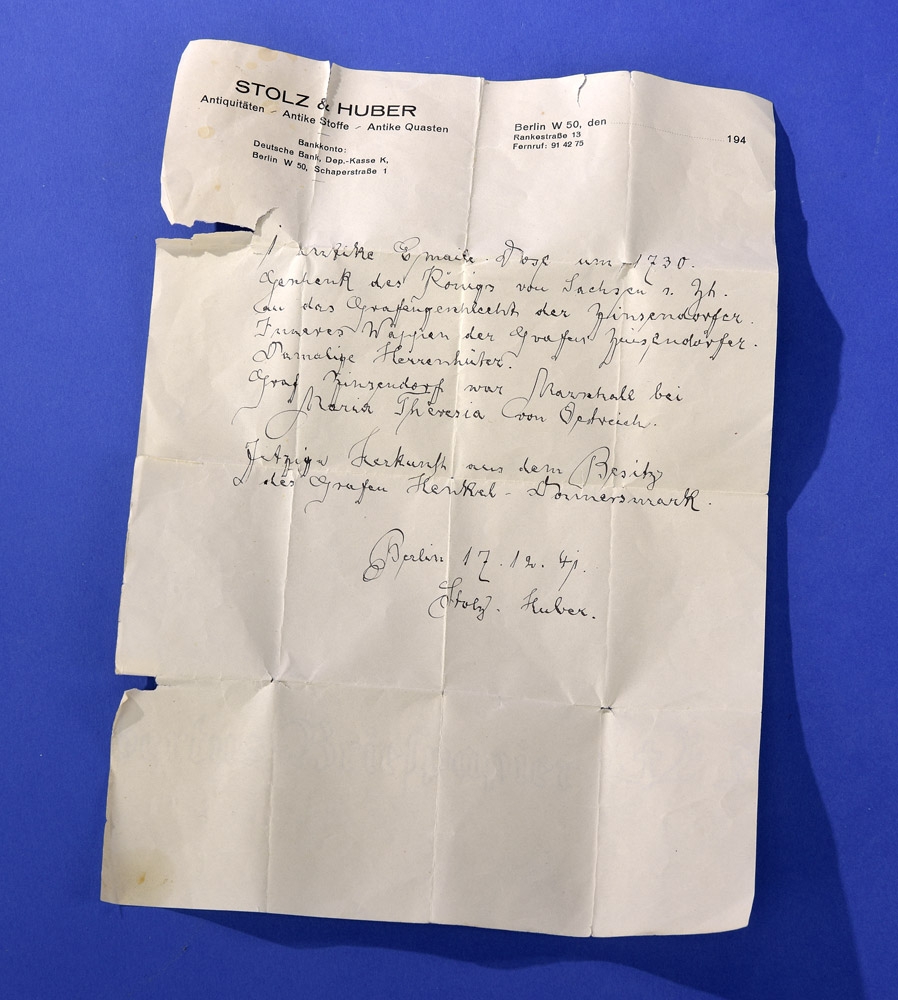 STOLZ & HUBER
Antiquitäten - Antike Stoffe - Antike Quasten
Bankkonto:
Deutsche Bank, Dep.-Kasse K,
Berlin W 50, Schaperstraße 1
Berlin W 50, den 194
Rankestraße 13
Fernruf: 91 42 75
1 antike Emaile-Dose um 1730.
Geschenk des Königs von Sachsen
an das Grafengeschlecht der Zinsendorfer.
Inneres Wappen der Grafen Zinsendorfer.
Damalige Herrenhüter.
Graf Zinzendorf war Marschall bei
Maria Theresia von Östreich.
Jetzige Herkunft aus dem Besitz
des Grafen Henkel-Donnersmark.
Berlin 17.12.41.
Stolz. Huber.